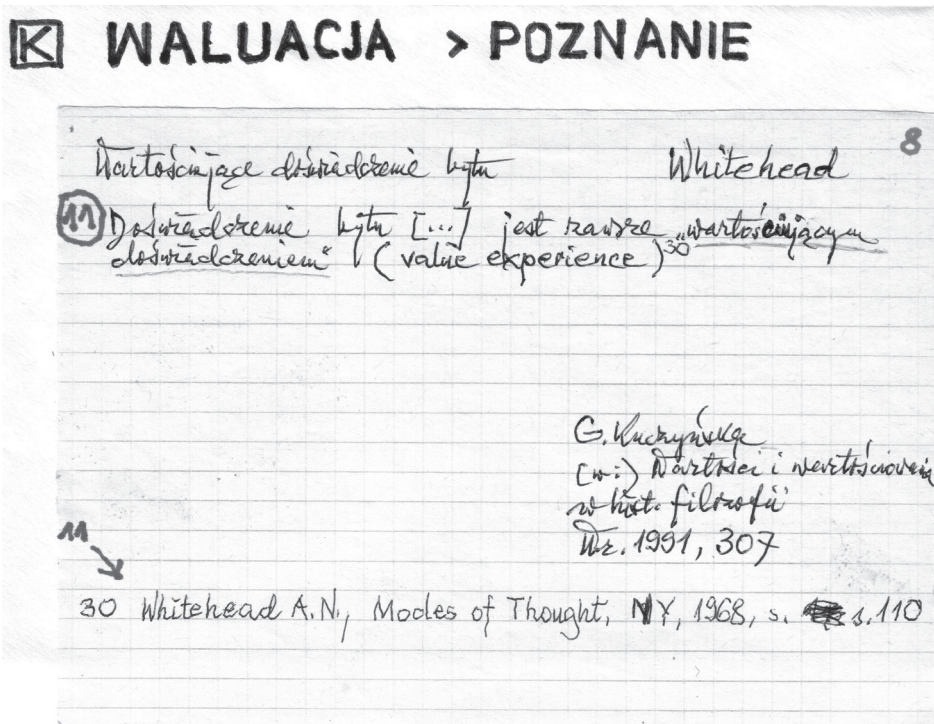 K WALUACJA > POZNANIE
8
Wartościujące doświadczenie bytu Whitehead
11 Doświadczenie bytu [...] jest zawsze „wartościującym
doświadczeniem" (value experience)30
G. Kuczyńska
[w:) Wartości i wartościowanie
w hist. filozofii
Wr. 1991, 307
11
30 Whitehead A.N., Modes of Thought, NY, 1968, s. s. 110